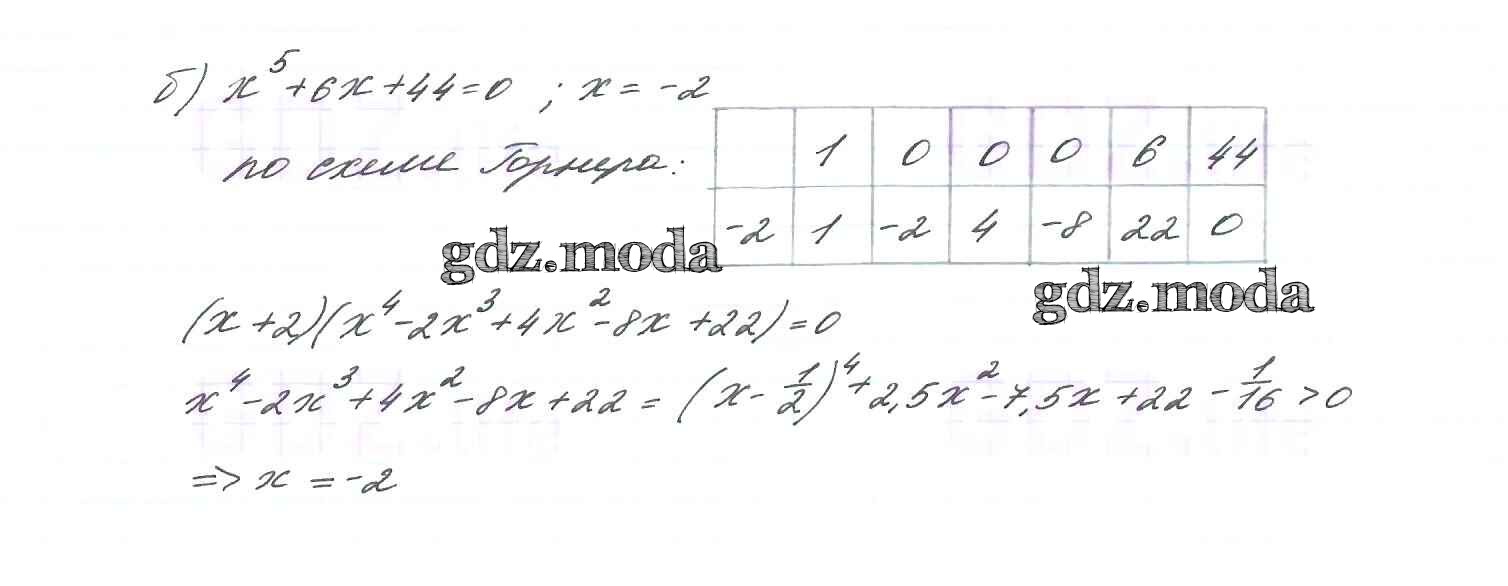 б) x⁵+6x+44=0 ; x= -2
по схеме Горнера:
1 0 0 0 6 44
-2 1 -2 4 -8 22 0
gdz.moda
gdz.moda
(x+2)(x⁴-2x³+4x²-8x+22)=0
x⁴-2x³+4x²-8x+22 = (x-1/2)⁴+2,5x²-7,5x+22-1/16>0
=> x = -2